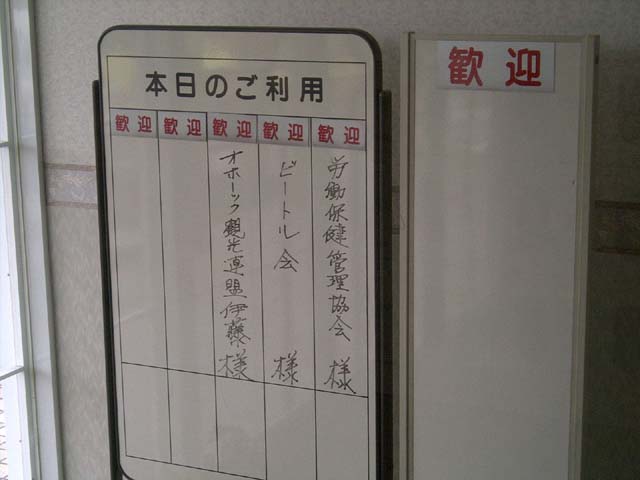 本日のご利用
歓迎
労働保健管理協会 様
歓迎
ビートル会 様
歓迎
オホーツク観光連盟伊藤様
歓迎
歓迎
歓迎